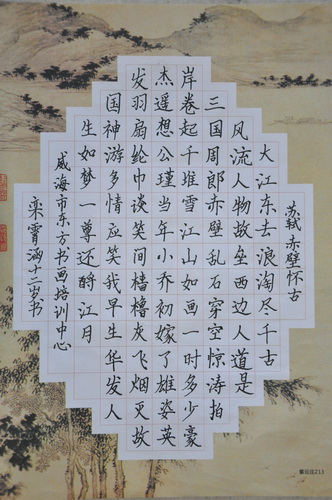 苏轼 赤壁怀古
大江东去浪淘尽千古
风流人物故垒西边人道是
三国周郎赤壁乱石穿空惊涛拍
岸卷起千堆雪江山如画一时多少豪
杰遥想公瑾当年小乔初嫁了雄姿英
发羽扇纶巾谈笑间樯橹灰飞烟灭故
国神游多情应笑我早生华发人
生如梦一尊还酹江月
威海市东方书画培训中心
栾霄涵十二岁书